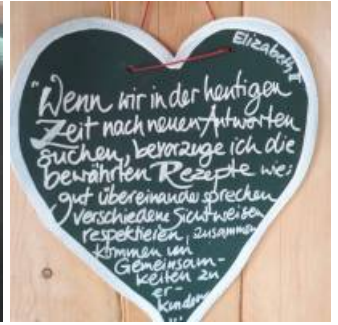 Elizabeth II
"Wenn wir in der heutigen
Zeit nach neuen Antworten
suchen, bevorzuge ich die
bewährten Rezepte wie:
gut übereinander sprechen
verschiedene Sichtweisen
respektieren, zusammen
kommen um
Gemeinsam-
keiten zu
er-
kunden